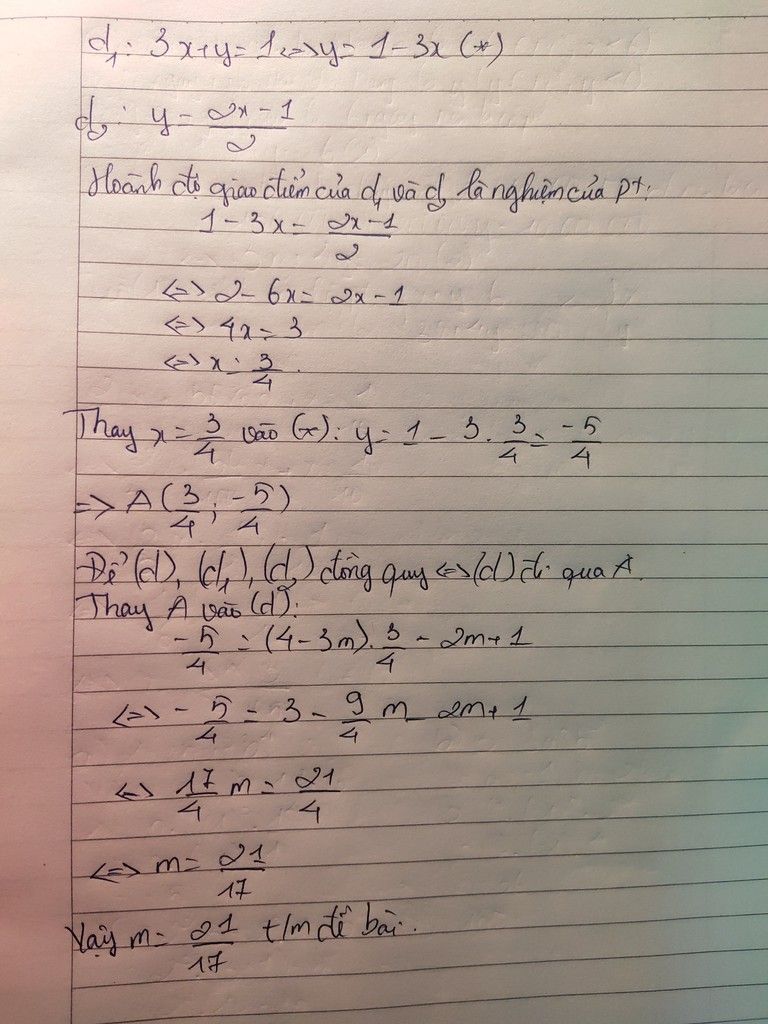 d₁: 3x+y=1 <=> y= 1-3x (*)
d₂: y= \frac{2x-1}{2}
Hoành độ giao điểm của d₁ và d₂ là nghiệm của pt:
1-3x= \frac{2x-1}{2}
<=> 2-6x= 2x-1
<=> 4x=3
<=> x= \frac{3}{4}.
Thay x= \frac{3}{4} vào (*): y= 1-3.\frac{3}{4}= \frac{-5}{4}
=> A(\frac{3}{4}; \frac{-5}{4})
Để (d), (d₁), (d₂) đồng quy <=> (d) đi qua A.
Thay A vào (d):
\frac{-5}{4} = (4-3m).\frac{3}{4} - 2m+1
<=> -\frac{5}{4} = 3 - \frac{9}{4}m - 2m+1
<=> \frac{17}{4}m = \frac{21}{4}
<=> m= \frac{21}{17}
Vậy m= \frac{21}{17} t/m đề bài.